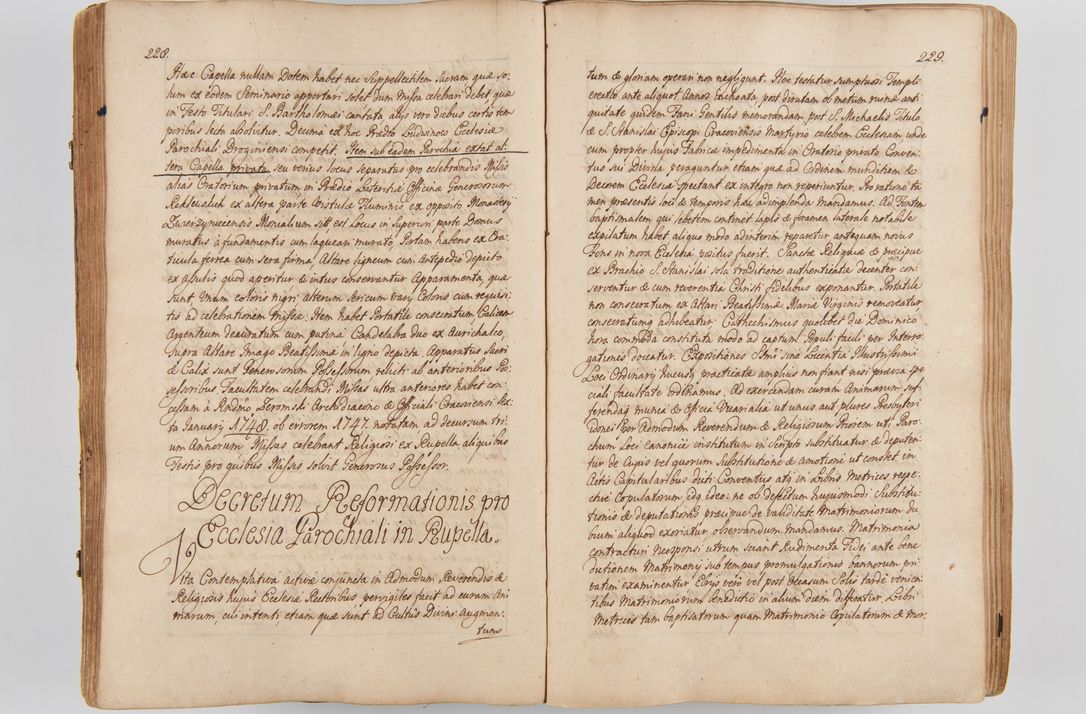 228.
Hæc Capella nullam Dotem habet nec Suppellectilem Sacram quæ so-
lum ex eodem Seminario apportari solet dum Missa celebrari debet quæ
in Festo Titulari S. Bartholomæi cantata, alijs vero diebus certo tem
poribus lecta absolvitur. Decima ex hoc Prædio Ecclesiæ
Parochiali competit. Item sub eadem Parochia extat al-
tera Capella privata seu venius locus separatus pro celebrandis Missis
alias Oratorium privatum in Prædio Officinæ Generosorum
ex altera parte Vistulæ Fluminis ex opposito Monasterij
Zwierzynecensis Monialium sitt. est Locus in Superiori parte Domus
muratus à fundamentis cum laqueari murato Portam habens ex Cra-
ticula ferrea cum sera firma Altare ligneum cum Antepedio depicto
ex assulis quod aperitur & intus conservantur Apparamenta, quæ
Sunt Unum coloris nigri alterum Sericum varij Coloris cum requisi-
tis ad celebrationem missæ. Item habet Portatile consecratum Calicem
Argenteum deauratum cum patina Candelabra duo ex Aurichalco
Supra Altare Imago Beatissimæ in ligno depicta. Apparatus Sacri
& Calix sunt Generosorum Possessorum relicti ab anterioribus Pos-
sessoribus. Facultatem celebrandi Missas ultra anteriores habet con-
cessam à Rndmo Archidiacono & Officiali Cracoviensi sex-
ta January 1748. ob errorem 1747. notatam ad decursum tri-
um Annorum Missas celebrant Religiosi ex Rupella aliquibus
Festis pro quibus Missas solvit Generosus Possessor.
Decretum Reformationis pro
Ecclesia Parochiali in Rupella.
Vita Contemplativa activæ conjuncta in Admodum Reverendis &
Religiosis hujus Ecclesiæ Rectoribus pervigiles facit ad curam Ani
marum, cui intenti etiam quæ sunt ad Cultus Divini Augmen-
tum
229.
tum & gloriam operari non negligunt. Hoc testatur sumptuosi Templi
erectio ante aliquot Annos inchoata, post dirutam ob metum ruinæ anti
quitate quidem Fani Gentilis memorandam post S. Michaelis Titulo
& S. Stanislai Episcopi Cracoviensis Martyrio celebrem Ecclesiam unde
cum propter hujus Fabricæ impedimenta in Oratorio privato Conven-
tus sui Divina peraguntur etiam quæ ad Ordinem munditiem &
Decorem Ecclesiæ spectant ex integro non reperiuntur. Pro ratione ta
men præsentis loci & temporis hæc adimplenda mandamus. Ad Fontem
baptismalem qui lebetem continet lapis & foramen laterale notabile
expilatum habet aliquo modo adinterim reparetur antequam novus
Fons in nova Ecclesia positus fuerit. Sanctæ Reliquiæ & præcipue
ex Brachio S. Stanislai sola traditione authenticatæ decenter con-
serventur & cum reverentia Christi fidelibus exponantur. Portatile
non consecratum ex Altari Beatissimæ Mariæ Virginis removeatur
consecratumq adhibeatur. Cathechismus quolibet die Dominico
hora commoda constituta modo ad captum Populi facili per Interro-
gationes doceatur. Expositiones Smi sine Licentia Illustrissimi
Loci Ordinarij hucusq practicatæ amplius non fiant nisi prævia spe
ciali facultate ordinamus. Ad exercendam curam Animarum suf-
ferendaq munia & Officia Vicarialia ut unus aut plures Presbyteri
idonei Per Admodum Reverendum & Religiosum Priorem uti Paro-
chum Loci canonice institutum in Scripto substituatur & deputen-
tur de Cujus vel quorum Substitutione & amotione ut constet in
Actis Capitularibus dicti Conventus atq in Libris Metrices respe-
ctive Copulatorum, idq ideo: ne ob defectum hujusmodi Substitu-
tionis & deputationis præcipue de validitate Matrimoniorum du
bium aliquod exoriatur observandum mandamus. Matrimonia
contracturi Neosponsi utrum sciant Rudimenta Fidei ante bene
dictionem Matrimonij sub tempus promulgationis bannorum pri-
vatim examinentur. Serius vero vel post Occasum Solis tarde venien-
tibus Matrimoniorum benedictio in alium diem differatur Libri
Metrices tam baptisatorum quam Matrimonio Copulatorum & mor-